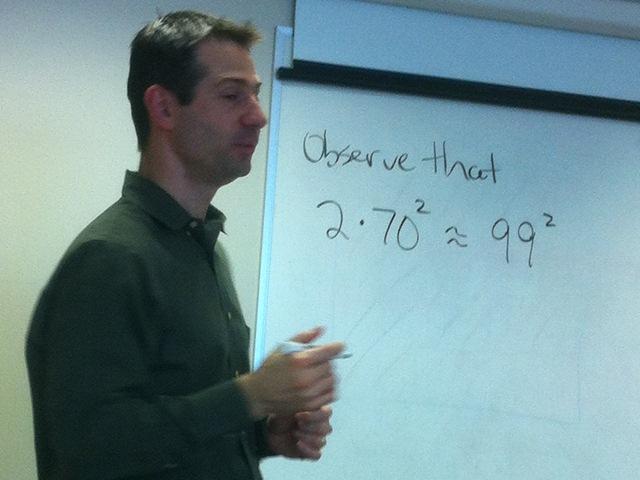 Observe that
2·70² ≈ 99²